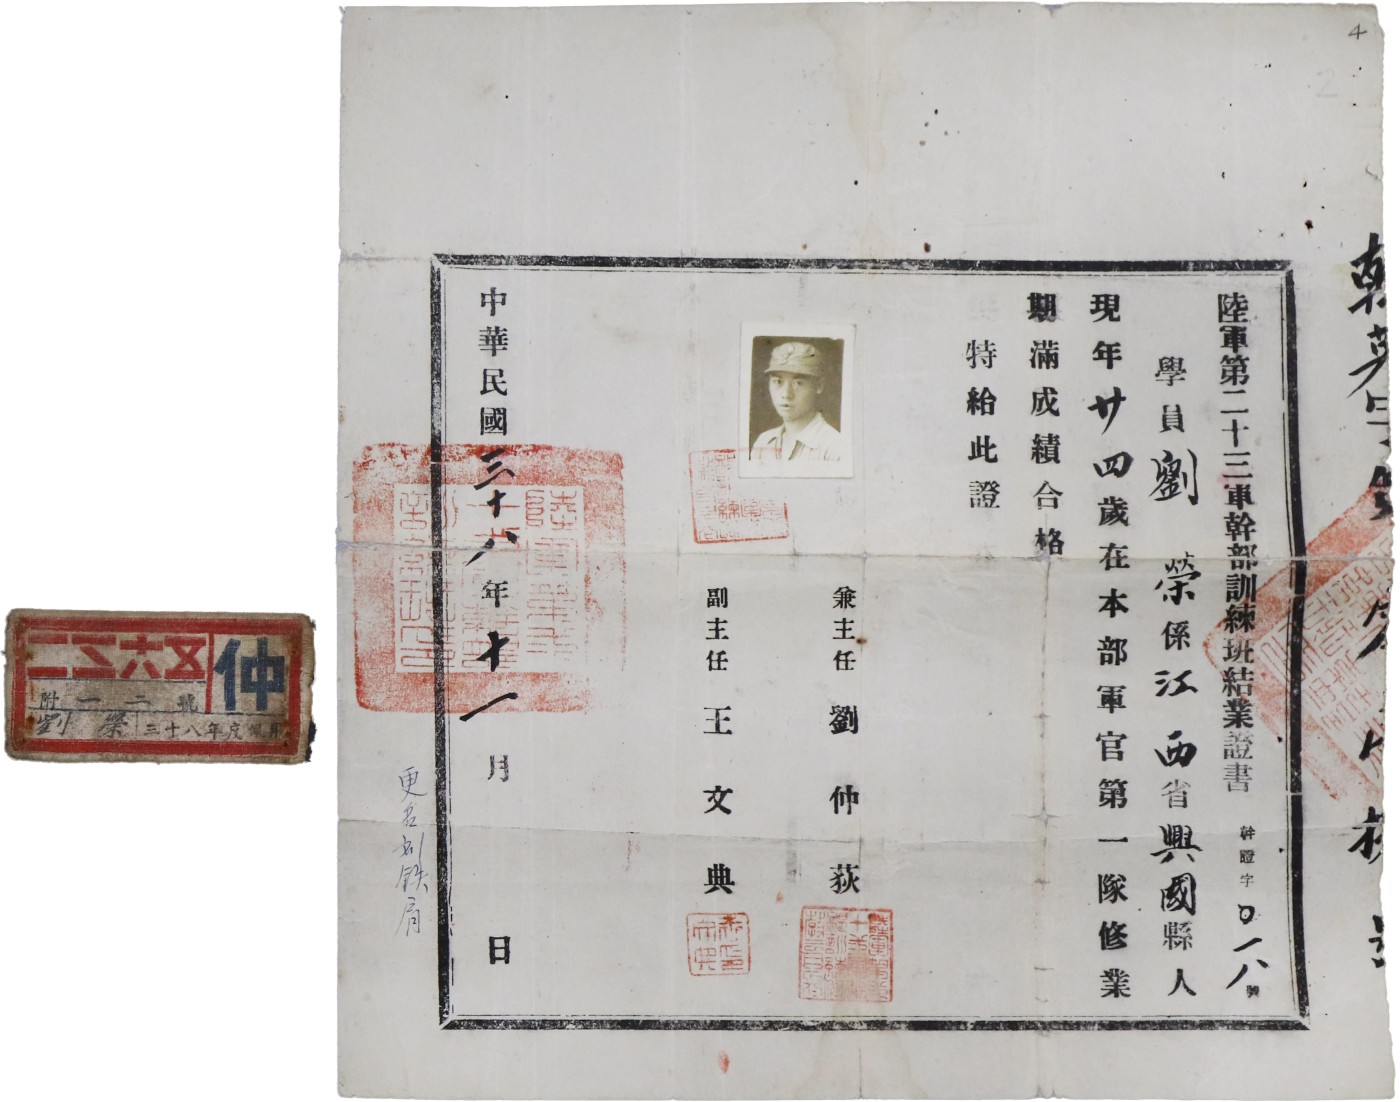 4
2
陸軍第二十三軍幹部訓練班結業證書
幹證字〇一八號
學員劉榮係江西省興國縣人
現年廿四歲在本部軍官第一隊修業
期滿成績合格
特給此證
兼主任劉仲荻
副主任王文典
中華民國三十八年十一月 日
更名刘铁肩
仲
五六三二
附一二號
劉榮
三十八年度佩用